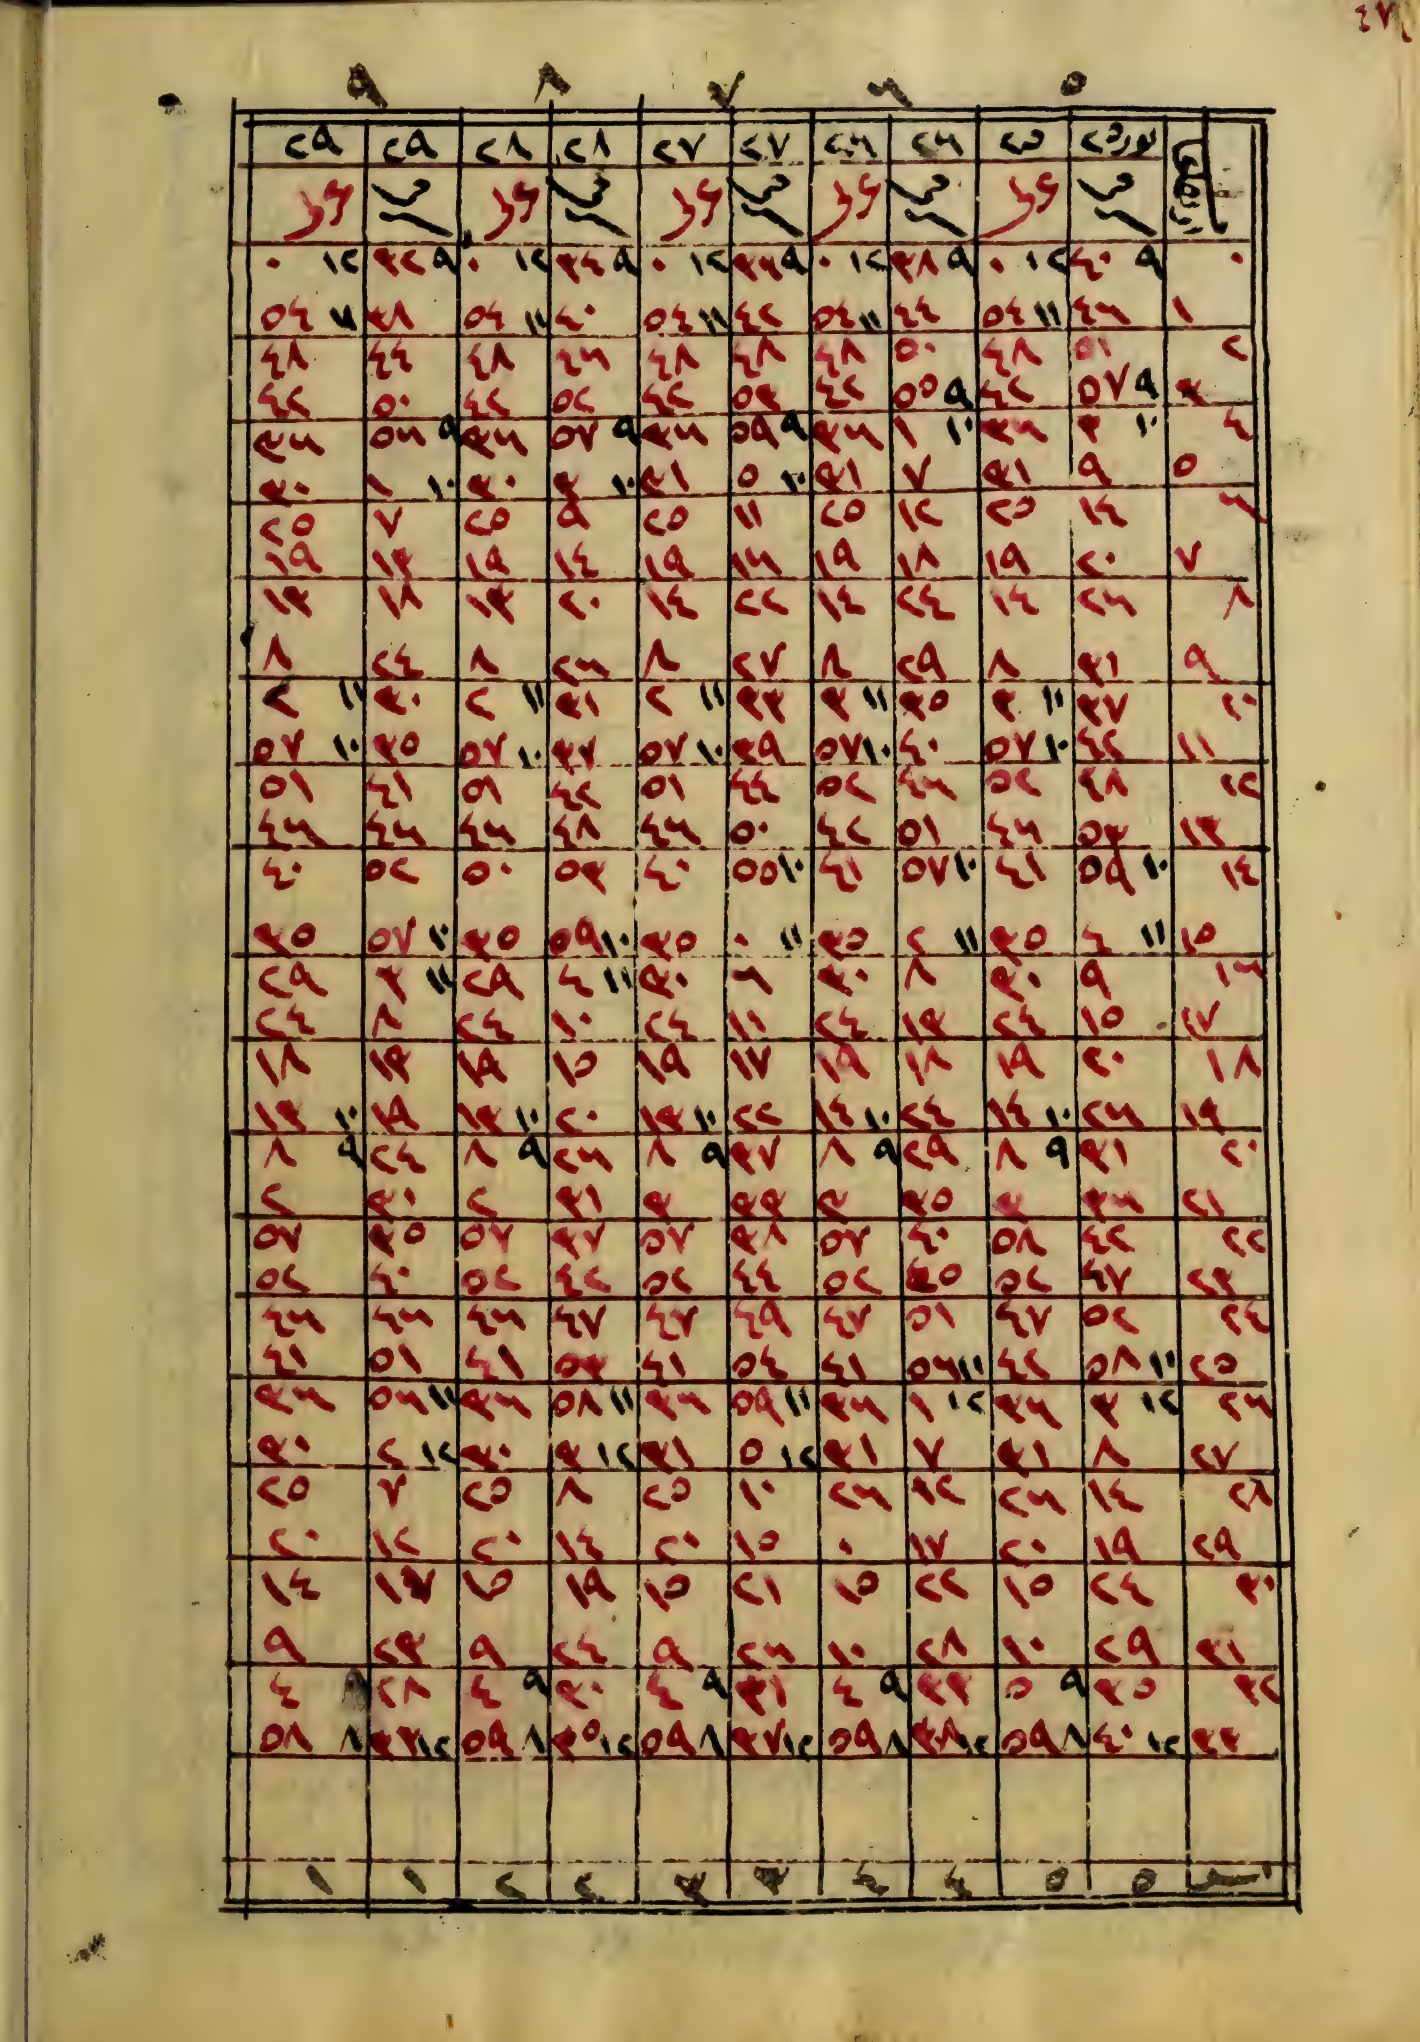 ٤٧
٥ ٦ ٧ ٨ ٩
٢٥ ٢٥ ٢٦ ٢٦ ٢٧ ٢٧ ٢٨ ٢٨ ٢٩ ٢٩
٠ ٩ ٤٠ ١٢ ٠ ٩ ٣٨ ١٢ ٠ ٩ ٣٦ ١٢ ٠ ٩ ٣٤ ١٢ ٠ ٩ ٣٢ ١٢ ٠
١ ٤٦ ١١ ٥٤ ٤٤ ١١ ٥٤ ٤٢ ١١ ٥٤ ٤٠ ١١ ٥٤ ٣٨ ١١ ٥٤
٢ ٥١ ٤٨ ٥٠ ٤٨ ٤٨ ٤٨ ٤٦ ٤٨ ٤٤ ٤٨
٣ ٩ ٥٧ ٤٢ ٩ ٥٥ ٤٢ ٥٣ ٤٢ ٥٢ ٤٢ ٥٠ ٤٢
٤ ١٠ ٣ ٣٦ ١٠ ١ ٣٦ ٩ ٥٩ ٣٦ ٩ ٥٧ ٣٦ ٩ ٥٦ ٣٦
٥ ٩ ٣١ ٧ ٣١ ١٠ ٥ ٣١ ١٠ ٣ ٣٠ ١٠ ١ ٣٠
٦ ١٤ ٢٥ ١٢ ٢٥ ١١ ٢٥ ٩ ٢٥ ٧ ٢٥
٧ ٢٠ ١٩ ١٨ ١٩ ١٦ ١٩ ١٤ ١٩ ١٣ ١٩
٨ ٢٦ ١٤ ٢٤ ١٤ ٢٢ ١٤ ٢٠ ١٣ ١٨ ١٣
٩ ٣١ ٨ ٢٩ ٨ ٢٧ ٨ ٢٦ ٨ ٢٤ ٨
١٠ ٣٧ ١١ ٣ ٣٥ ١١ ٣ ٣٣ ١١ ٢ ٣١ ١١ ٢ ٣٠ ١١ ٢
١١ ٤٢ ١٠ ٥٧ ٤٠ ١٠ ٥٧ ٣٩ ١٠ ٥٧ ٣٧ ١٠ ٥٧ ٣٥ ١٠ ٥٧
١٢ ٤٨ ٥٢ ٤٦ ٥٢ ٤٤ ٥١ ٤٢ ٥١ ٤١ ٥١
١٣ ٥٣ ٤٦ ٥١ ٤٦ ٥٠ ٤٦ ٤٨ ٤٦ ٤٦ ٤٦
١٤ ١٠ ٥٩ ٤١ ١٠ ٥٧ ٤١ ١٠ ٥٥ ٤٠ ٥٣ ٥٠ ٥٢ ٤٠
١٥ ١١ ٤ ٣٥ ١١ ٢ ٣٥ ١١ ٠ ٣٥ ١٠ ٥٩ ٣٥ ١٠ ٥٧ ٣٥
١٦ ٩ ٣٠ ٨ ٣٠ ٦ ٣٠ ١١ ٤ ٢٩ ١١ ٣ ٢٩
١٧ ١٥ ٢٤ ١٣ ٢٤ ١١ ٢٤ ١٠ ٢٤ ٨ ٢٤
١٨ ٢٠ ١٩ ١٨ ١٩ ١٧ ١٩ ١٥ ١٩ ١٣ ١٨
١٩ ٢٦ ١٠ ١٤ ٢٤ ١٠ ١٤ ٢٢ ١٠ ١٣ ٢٠ ١٠ ١٣ ١٩ ١٠ ١٣
٢٠ ٣١ ٩ ٨ ٢٩ ٩ ٨ ٢٧ ٩ ٨ ٢٦ ٩ ٨ ٢٤ ٩ ٨
٢١ ٣٦ ٣ ٣٥ ٣ ٣٣ ٣ ٣١ ٢ ٣٠ ٢
٢٢ ٤٢ ٥٨ ٤٠ ٥٧ ٣٨ ٥٧ ٣٧ ٥٧ ٣٥ ٥٧
٢٣ ٤٧ ٥٢ ٤٥ ٥٢ ٤٤ ٥٢ ٤٢ ٥٢ ٤٠ ٥٢
٢٤ ٥٢ ٤٧ ٥١ ٤٧ ٤٩ ٤٧ ٤٧ ٤٦ ٤٦ ٤٦
٢٥ ١١ ٥٨ ٤٢ ١١ ٥٦ ٤١ ٥٤ ٤١ ٥٣ ٤١ ٥١ ٤١
٢٦ ١٢ ٣ ٣٦ ١٢ ١ ٣٦ ١١ ٥٩ ٣٦ ١١ ٥٨ ٣٦ ١١ ٥٦ ٣٦
٢٧ ٨ ٣١ ٧ ٣١ ١٢ ٥ ٣١ ١٢ ٣ ٣٠ ١٢ ٢ ٣٠
٢٨ ١٤ ٢٦ ١٢ ٢٦ ١٠ ٢٥ ٨ ٢٥ ٧ ٢٥
٢٩ ١٩ ٢٠ ١٧ ٠ ١٥ ٢٠ ١٤ ٢٠ ١٢ ٢٠
٣٠ ٢٤ ١٥ ٢٢ ١٥ ٢١ ١٥ ١٩ ١٥ ١٧ ١٤
٣١ ٢٩ ١٠ ٢٨ ١٠ ٢٦ ٩ ٢٤ ٩ ٢٣ ٩
٣٢ ٣٥ ٩ ٥ ٣٣ ٩ ٤ ٣١ ٩ ٤ ٣٠ ٩ ٤ ٢٨ ٤
٣٣ ١٢ ٤٠ ٨ ٥٩ ١٢ ٣٨ ٨ ٥٩ ١٢ ٣٧ ٨ ٥٩ ١٢ ٣٥ ٨ ٥٩ ١٢ ٣٣ ٨ ٥٨
٥ ٥ ٤ ٤ ٣ ٣ ٢ ٢ ١ ١